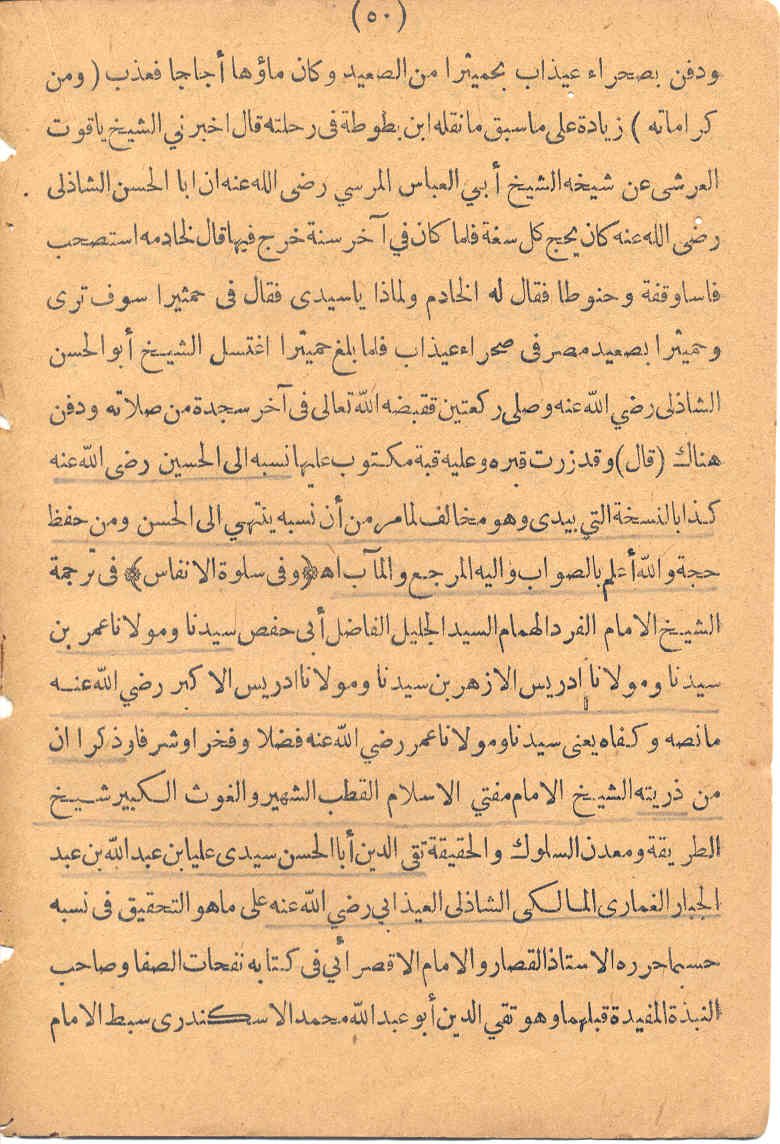 (٥٠)
ودفن بصحراء عيذاب بحميثرا من الصعيد وكان ماؤها أجاجا فعذب (ومن
كراماته) زيادة على ماسبق مانقله ابن بطوطة فى رحلته قال اخبرني الشيخ ياقوت
العرشى عن شيخه الشيخ أبي العباس المرسي رضى الله عنه ان ابا الحسن الشاذلى
رضى الله عنه كان يحج كل سغة فلما كان في آخر سنة خرج فيها قال لخادمه استصحب
فاسا وقفة وحنوطا فقال له الخادم ولماذا ياسيدى فقال فى حمثيرا سوف ترى
وحميثرا بصعيد مصر فى صحراء عيذاب فلما بلغ حميثرا اغتسل الشيخ أبو الحسن
الشاذلى رضي الله عنه وصلى ركعتين فقبضه الله تعالى فى آخر سجدة من صلاته ودفن
هناك (قال) وقد زرت قبره وعليه قبة مكتوب عليها نسبه الى الحسين رضى الله عنه
كذا بالنسخة التي بيدى وهو مخالف لما مر من أن نسبه ينتهي الى الحسن ومن حفظ
حجة والله أعلم بالصواب واليه المرجع والمآب اه ﴿وفى سلوة الانفاس﴾ فى ترجمة
الشيخ الامام الفرد الهمام السيد الجليل الفاضل أبى حفص سيدنا ومولانا عمر بن
سيدنا ومولانا أدريس الازهر بن سيدنا ومولانا ادريس الاكبر رضي الله عنه
مانصه وكفاه يعنى سيدنا ومولانا عمر رضي الله عنه فضلا وفخرا وشرفا وذكرا ان
من ذريته الشيخ الامام مفتي الاسلام القطب الشهير والغوث الكبير شيخ
الطريقة ومعدن السلوك والحقيقة تقى الدين أبا الحسن سيدى عليا بن عبد الله بن عبد
الجبار الغمارى المالكى الشاذلى العيذابي رضي الله عنه على ماهو التحقيق فى نسبه
حسبما حرره الاستاذ القصار والامام الاقصرائي فى كتابه نفحات الصفا وصاحب
النبذة المفيدة قبلهما وهو تقي الدين أبو عبد الله محمد الاسكندرى سبط الامام